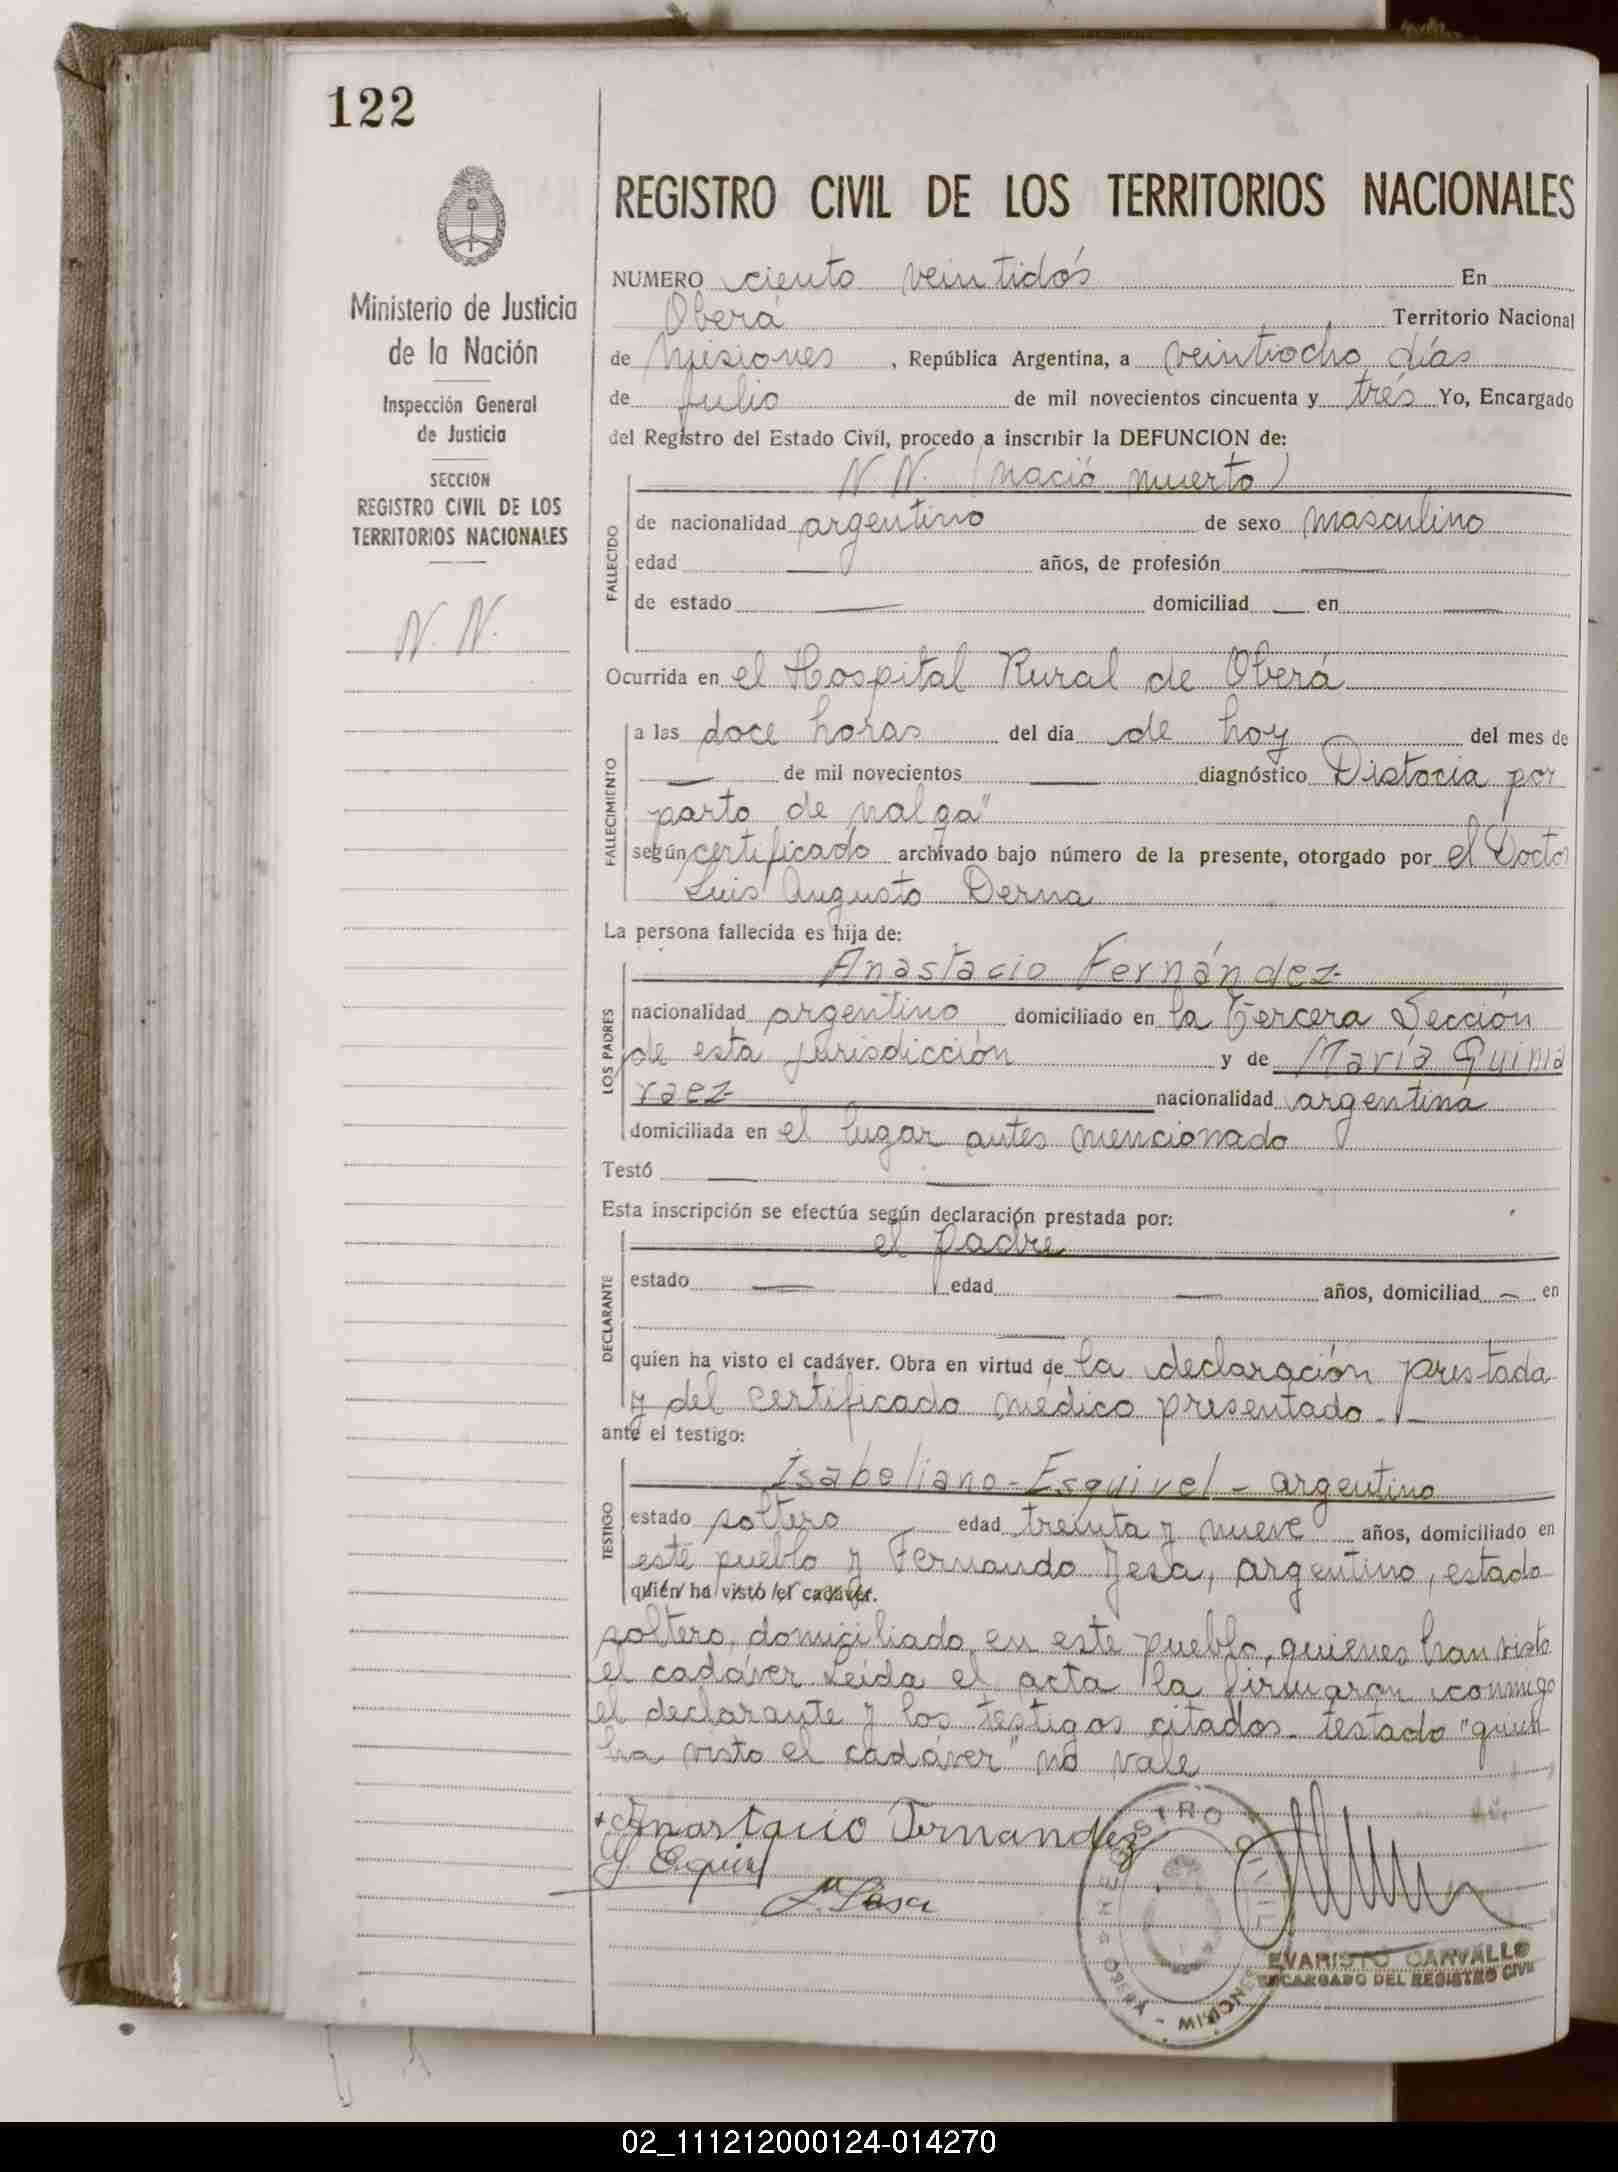 122
REGISTRO CIVIL DE LOS TERRITORIOS NACIONALES
Ministerio de Justicia
de la Nación
Inspección General
de Justicia
SECCION
REGISTRO CIVIL DE LOS
TERRITORIOS NACIONALES
N. N.
NUMERO ciento veintidós En
Oberá Territorio Nacional
de Misiones, República Argentina, a veintiocho días
de julio de mil novecientos cincuenta y trés Yo, Encargado
del Registro del Estado Civil, procedo a inscribir la DEFUNCION de:
N. N. (nació muerto)
FALLECIDO
de nacionalidad argentino de sexo masculino
edad — años, de profesión —
de estado — domiciliad — en —
Ocurrida en el Hospital Rural de Oberá
FALLECIMIENTO
a las doce horas del día de hoy del mes de
— de mil novecientos — diagnóstico Distocia por
parto de nalga"
según certificado archivado bajo número de la presente, otorgado por el Doctor
Luis Augusto Derna
La persona fallecida es hija de:
LOS PADRES
Anastacio Fernández
nacionalidad argentino domiciliado en la Tercera Sección
de esta jurisdicción y de María Guima
raez nacionalidad argentina
domiciliada en el lugar antes mencionado
Testó — —
Esta inscripción se efectúa según declaración prestada por:
DECLARANTE
el padre
estado — edad — años, domiciliad — en
—
quien ha visto el cadáver. Obra en virtud de la declaración prestada
y del certificado médico presentado. —
ante el testigo:
TESTIGO
Isabeliano - Esquivel - argentino
estado soltero edad treinta y nueve años, domiciliado en
este pueblo y Fernando, argentino, estado
quien ha visto el cadáver.
soltero, domiciliado en este pueblo, quienes han visto
el cadáver Leída el acta la firmaron conmigo
el declarante y los testigos citados - testado "quien
ha visto el cadáver" no vale
Anastacio Fernandez
REGISTRO CIVIL
MISIONES
EVARISTO CARVALLO
ENCARGADO DEL REGISTRO CIVIL
02_111212000124-014270